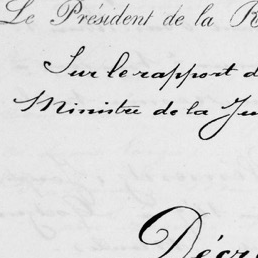 Le Président de la R
Sur le rapport d
Ministre de la Ju
Décr